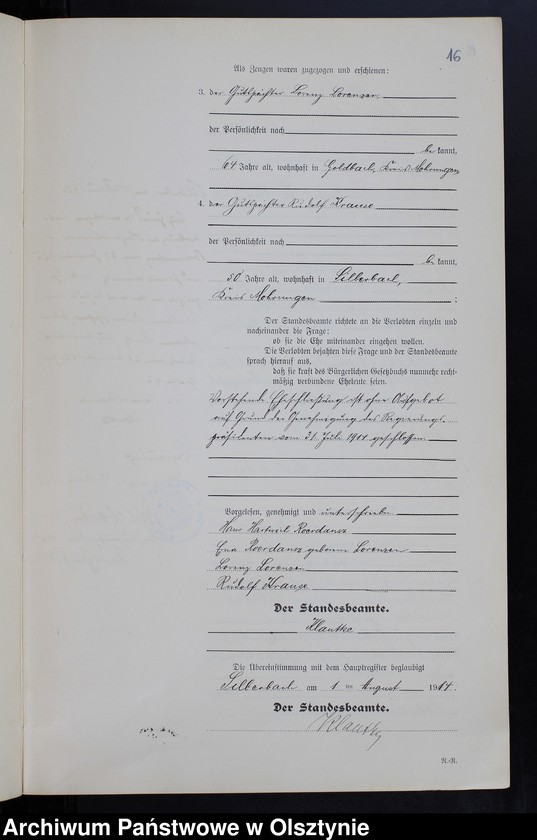 16
Als Zeugen waren zugezogen und erschienen:
3. der Gutspächter Lorenz Lorenzen,
der Persönlichkeit nach
bekannt,
64 Jahre alt, wohnhaft in Goldbach, Kreis Mohrungen
4. der Gutspächter Rudolf Krause
der Persönlichkeit nach
bekannt,
50 Jahre alt, wohnhaft in Silberbach,
Kreis Mohrungen ;
Der Standesbeamte richtete an die Verlobten einzeln und
nacheinander die Frage:
ob sie die Ehe miteinander eingehen wollen.
Die Verlobten bejahten diese Frage und der Standesbeamte
sprach hierauf aus,
daß sie kraft des Bürgerlichen Gesetzbuchs nunmehr recht-
mäßig verbundene Eheleute seien.
Vorstehende Eheschließung ist ohne Aufgebot
auf Grund der Genehmigung des Regierungs-
präsidenten vom 31. Juli 1914 geschlossen.
Vorgelesen, genehmigt und unterschrieben
Hans Roerdansz
Roerdansz geborene Lorenzen
Lorenz Lorenzen
Rudolf Krause
Der Standesbeamte.
Klautke
Die Übereinstimmung mit dem Hauptregister beglaubigt
Silberbach am 1 ten August 1914.
Der Standesbeamte.
Klautke
R.-R.
Archiwum Państwowe w Olsztynie